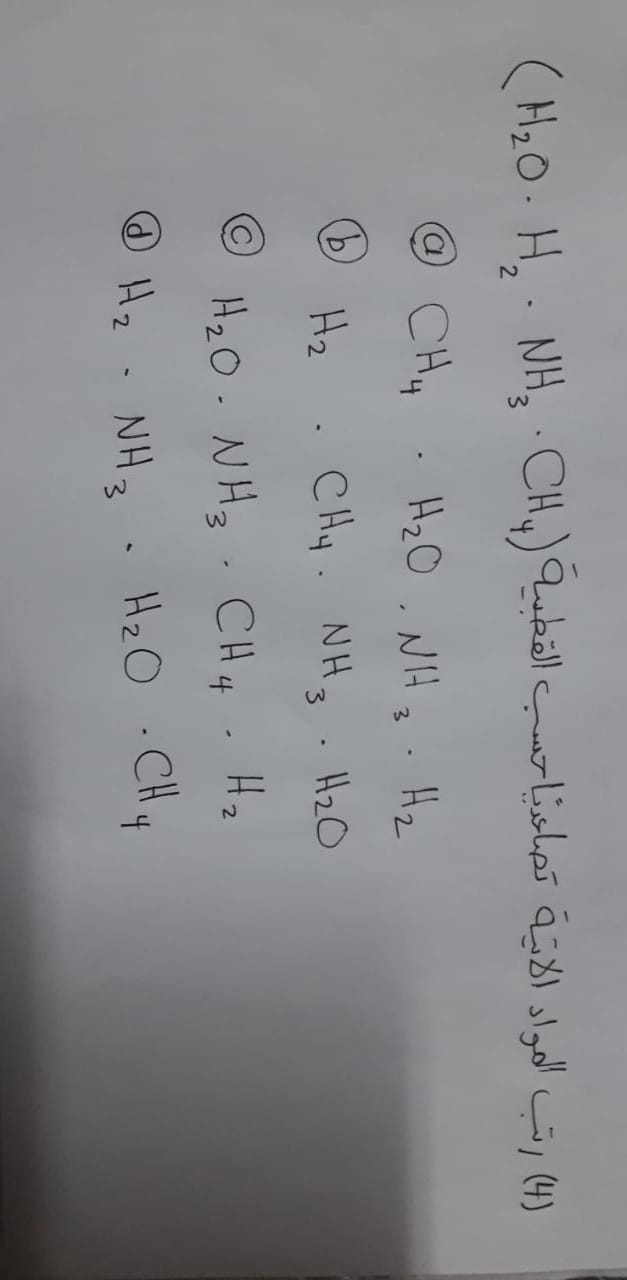 (4) رتب المواد الاتية تصاعديًا حسب القطبية (H₂O . H₂ . NH₃ . CH₄)
ⓐ CH₄ . H₂O . NH₃ . H₂
ⓑ H₂ . CH₄ . NH₃ . H₂O
ⓒ H₂O . NH₃ . CH₄ . H₂
ⓓ H₂ . NH₃ . H₂O . CH₄